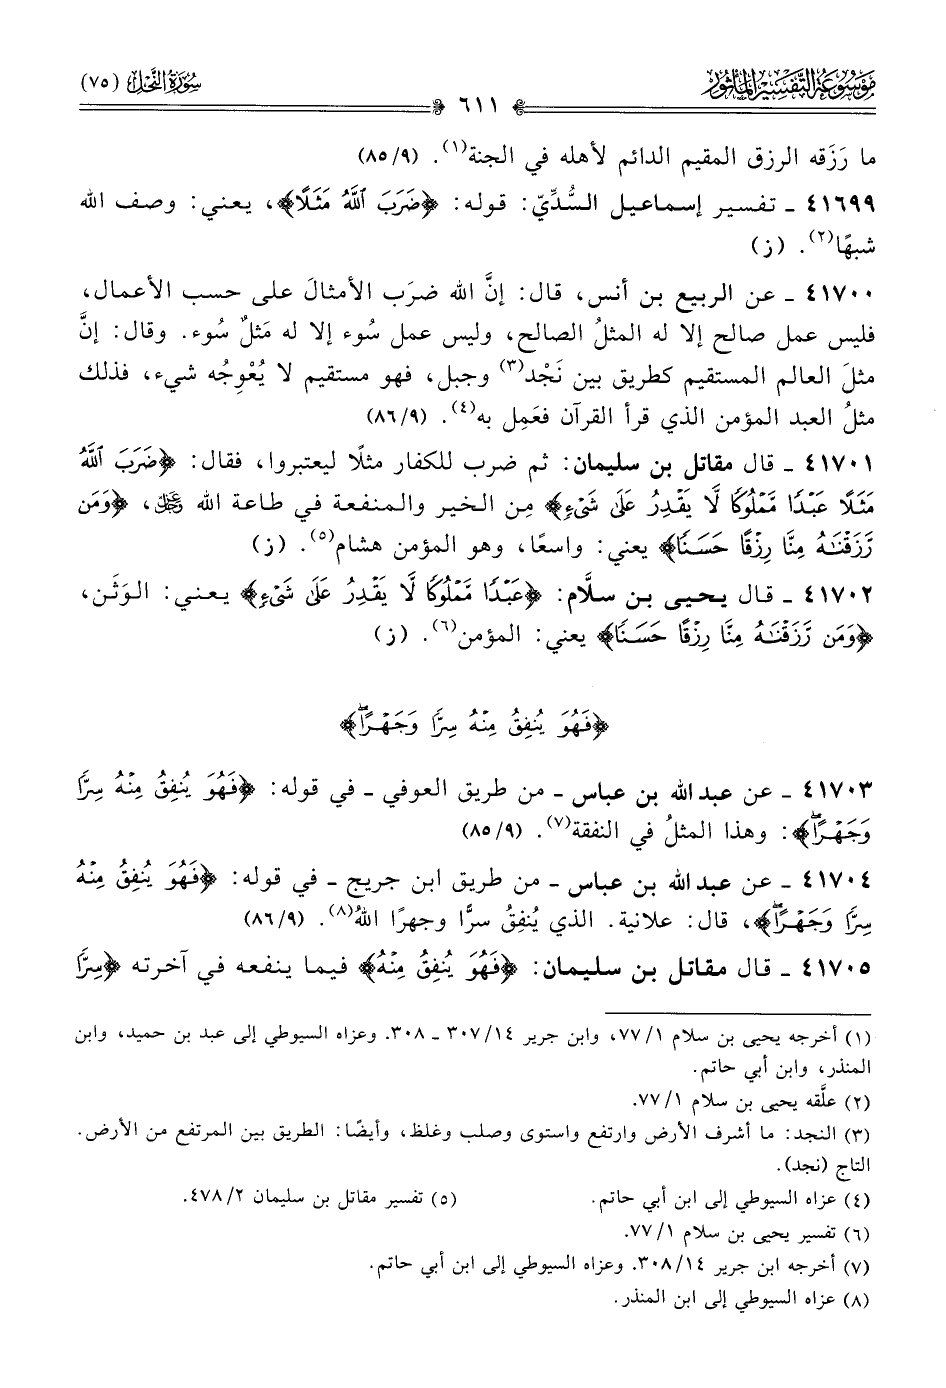 موسوعة التفسير المأثور
سورة النحل (٧٥)
٦١١
ما رَزَقه الرزق المقيم الدائم لأهله في الجنة(١). (٨٥/٩)
٤١٦٩٩ ـ تفسير إسماعيل السُّدِّيّ: قوله: ﴿ضَرَبَ ٱللَّهُ مَثَلًا﴾، يعني: وصف الله
شبهًا(٢). (ز)
٤١٧٠٠ ـ عن الربيع بن أنس، قال: إنَّ الله ضرَب الأمثالَ على حسب الأعمال،
فليس عمل صالح إلا له المثلُ الصالح، وليس عمل سُوء إلا له مَثلٌ سُوء. وقال: إنَّ
مثلَ العالم المستقيم كطريق بين نَجْد(٣) وجبل، فهو مستقيم لا يُعْوِجُه شيء، فذلك
مثلُ العبد المؤمن الذي قرأ القرآن فعَمِل به(٤). (٨٦/٩)
٤١٧٠١ ـ قال مقاتل بن سليمان: ثم ضرب للكفار مثلًا ليعتبروا، فقال: ﴿ضَرَبَ ٱللَّهُ
مَثَلًا عَبْدًا مَّمْلُوكًا لَّا يَقْدِرُ عَلَىٰ شَىْءٍ﴾ مِن الخير والمنفعة في طاعة الله ﷿، ﴿وَمَن
رَّزَقْنَٰهُ مِنَّا رِزْقًا حَسَنًا﴾ يعني: واسعًا، وهو المؤمن هشام(٥). (ز)
٤١٧٠٢ ـ قال يحيى بن سلَّام: ﴿عَبْدًا مَّمْلُوكًا لَّا يَقْدِرُ عَلَىٰ شَىْءٍ﴾ يعني: الوَثَن،
﴿وَمَن رَّزَقْنَٰهُ مِنَّا رِزْقًا حَسَنًا﴾ يعني: المؤمن(٦). (ز)
﴿فَهُوَ يُنفِقُ مِنْهُ سِرًّا وَجَهْرًا ۖ﴾
٤١٧٠٣ ـ عن عبد الله بن عباس ـ من طريق العوفي ـ في قوله: ﴿فَهُوَ يُنفِقُ مِنْهُ سِرًّا
وَجَهْرًا ۖ﴾: وهذا المثلُ في النفقة(٧). (٨٥/٩)
٤١٧٠٤ ـ عن عبد الله بن عباس ـ من طريق ابن جريج ـ في قوله: ﴿فَهُوَ يُنفِقُ مِنْهُ
سِرًّا وَجَهْرًا ۖ﴾، قال: علانية. الذي يُنفِقُ سرًّا وجهرًا اللهُ(٨). (٨٦/٩)
٤١٧٠٥ ـ قال مقاتل بن سليمان: ﴿فَهُوَ يُنفِقُ مِنْهُ﴾ فيما ينفعه في آخرته ﴿سِرًّا
(١) أخرجه يحيى بن سلام ٧٧/١، وابن جرير ٣٠٧/١٤ ـ ٣٠٨. وعزاه السيوطي إلى عبد بن حميد، وابن
المنذر، وابن أبي حاتم.
(٢) علَّقه يحيى بن سلام ٧٧/١.
(٣) النجد: ما أشرف الأرض وارتفع واستوى وصلب وغلظ، وأيضًا: الطريق بين المرتفع من الأرض.
التاج (نجد).
(٤) عزاه السيوطي إلى ابن أبي حاتم. (٥) تفسير مقاتل بن سليمان ٤٧٨/٢.
(٦) تفسير يحيى بن سلام ٧٧/١.
(٧) أخرجه ابن جرير ٣٠٨/١٤. وعزاه السيوطي إلى ابن أبي حاتم.
(٨) عزاه السيوطي إلى ابن المنذر.